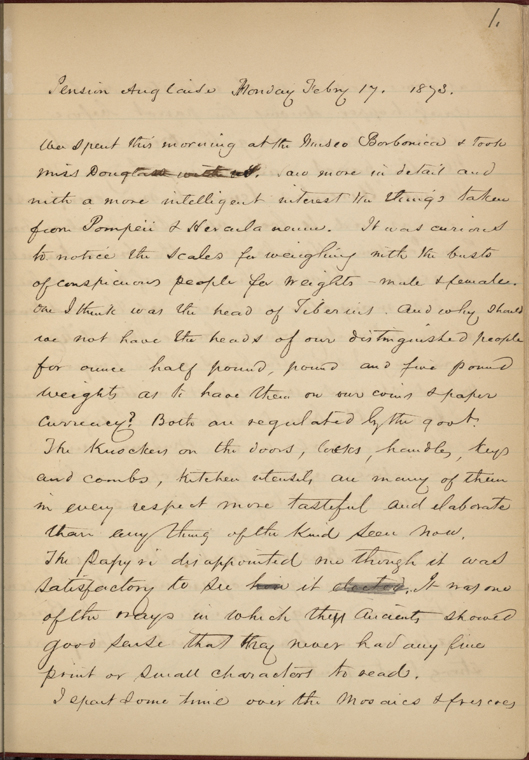 1.
Pension Anglaise Monday Febry 17. 1873.
We spent this morning at the Museo Borbonica & took
Miss Douglass with us. Saw more in detail and
with a more intelligent interest the things taken
from Pompeii & Herculaneum. It was curious
to notice the scales for weighing with the busts
of conspicuous people for weights – male & female.
One I think was the head of Tiberius. And why should
we not have the heads of our distinguished people
for ounce half pound, pound and five pound
weights as to have them on our coins & paper
currency? Both are regulated by the govt.
The knockers on the doors, locks, handles, keys
and combs, kitchen utensils are many of them
in every respect more tasteful and elaborate
than any thing of the kind seen now.
The papyri disappointed me though it was
satisfactory to see how it. It was one
of the ways in which the Ancients showed
good sense that they never had any fine
print or small characters to read.
I spent some time over the Mosaics & frescoes